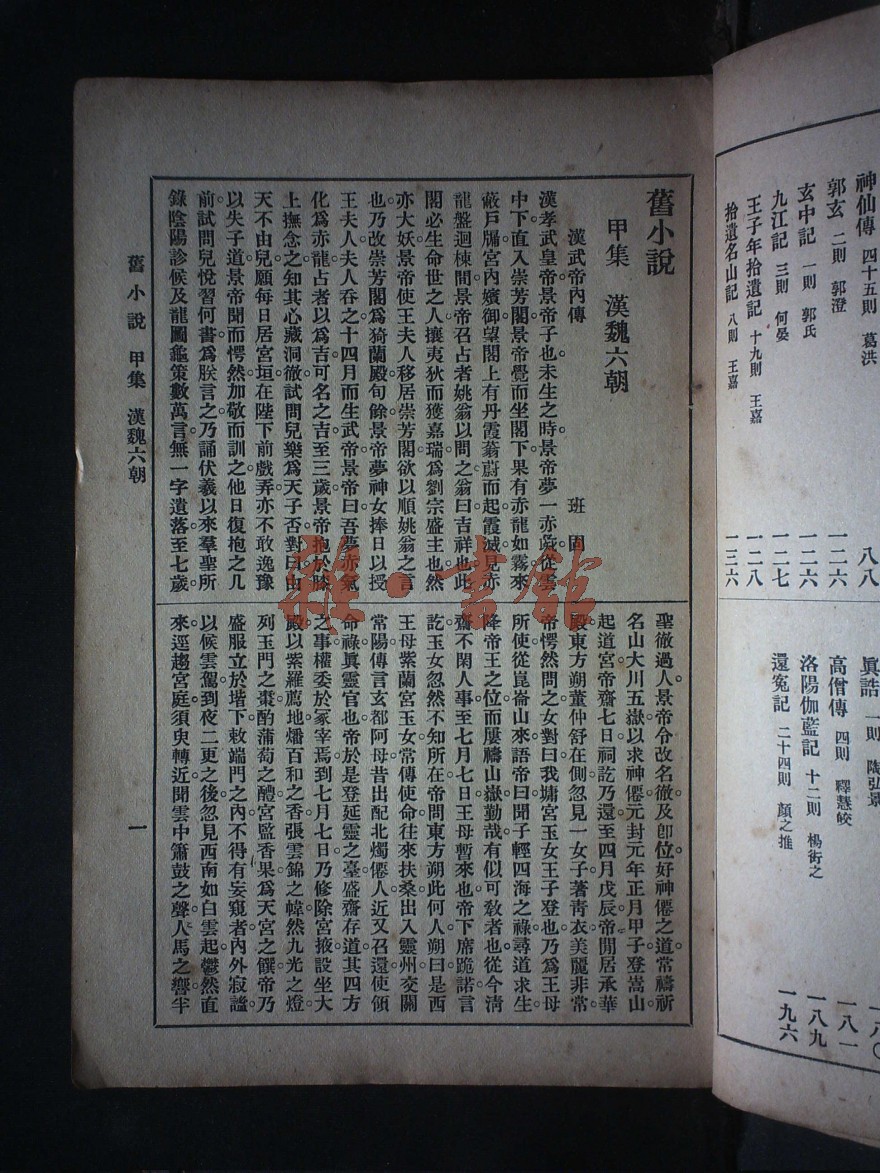 神仙傳 四十五則 葛洪 八八
郭玄 二則 郭澄 一二六
玄中記 一則 郭氏 一二六
九江記 三則 何晏 一二七
王子年拾遺記 十九則 王嘉 一二八
拾遺名山記 八則 王嘉 一三六
眞誥 一則 陶弘景 一八〇
高僧傳 四則 釋慧皎 一八一
洛陽伽藍記 十二則 楊衒之 一八九
還寃記 二十四則 顏之推 一九六
舊小說
甲集 漢魏六朝
漢武帝內傳 班固
漢孝武皇帝景帝子也。未生之時。景帝夢一赤彘從雲
中下。直入崇芳閣。景帝覺而坐閣下。果有赤龍如霧。來
蔽戶牖。宮內嬪御望閣上有丹霞蓊蔚而起。霞滅見赤
龍盤迴棟間。景帝召占者姚翁以問之。翁曰吉祥也。此
閣必生命世之人。攘夷狄而獲嘉瑞。爲劉宗盛主也。然
亦大妖。景帝使王夫人移居崇芳閣。欲以順姚翁之言
也。乃改崇芳閣爲猗蘭殿。旬餘。景帝夢神女捧日以授
王夫人。夫人吞之。十四月而生武帝。景帝曰。吾夢赤氣
化爲赤龍。占者以爲吉。可名之吉。至三歲。景帝抱於膝
上。撫念之。知其心藏洞徹。試問兒樂爲天子否。對曰。由
天不由兒。願每日居宮垣。在陛下前戲弄。亦不敢逸豫
以失子道。景帝聞而愕然。加敬而訓之。他日復抱之几
前。試問兒悅習何書。爲朕言之。乃誦伏羲以來羣聖所
錄。陰陽診候。及龍圖龜策數萬言。無一字遺落。至七歲
聖徹過人。景帝令改名徹。及卽位。好神僊之道。常禱祈
名山大川五嶽。以求神僊。元封元年正月甲子。登嵩山
起道宮。帝齋七日。祠訖乃還。至四月戊辰。帝閒居承華
殿。東方朔董仲舒在側。忽見一女子。著靑衣。美麗非常
帝愕然問之。女對曰。我墉宮玉女王子登也。乃爲王母
所使。從崑崙山來。語帝曰。聞子輕四海之祿。尋道求生
降帝王之位。而屢禱山嶽。勤哉。有似可敎者也。從今淸
齋。不閑人事。至七月七日。王母暫來也。帝下席跪諾。言
訖。玉女忽然不知所在。帝問東方朔此何人。朔曰。是西
王母紫蘭宮玉女。常傳使命。往來扶桑。出入靈州。交關
常陽。傳言玄都。阿母昔出配北燭僊人。近又召還。使領
命祿。眞靈官也。帝於是登延靈之臺。盛齋存道。其四方
之事權。委於冢宰焉。到七月七日。乃修除宮掖。設坐大
殿。以紫羅薦地。燔百和之香。張雲錦之幃。然九光之燈
列玉門之棗。酌蒲萄之醴。宮監香果。爲天宮之饌。帝乃
盛服立於堦下。敕端門之內。不得有妄窺者。內外寂謐
以候雲駕。到夜二更之後。忽見西南如白雲起。鬱然直
來。逕趨宮庭。須臾轉近。聞雲中簫鼓之聲。人馬之響。半
舊小說 甲集 漢魏六朝
一
雜·書館